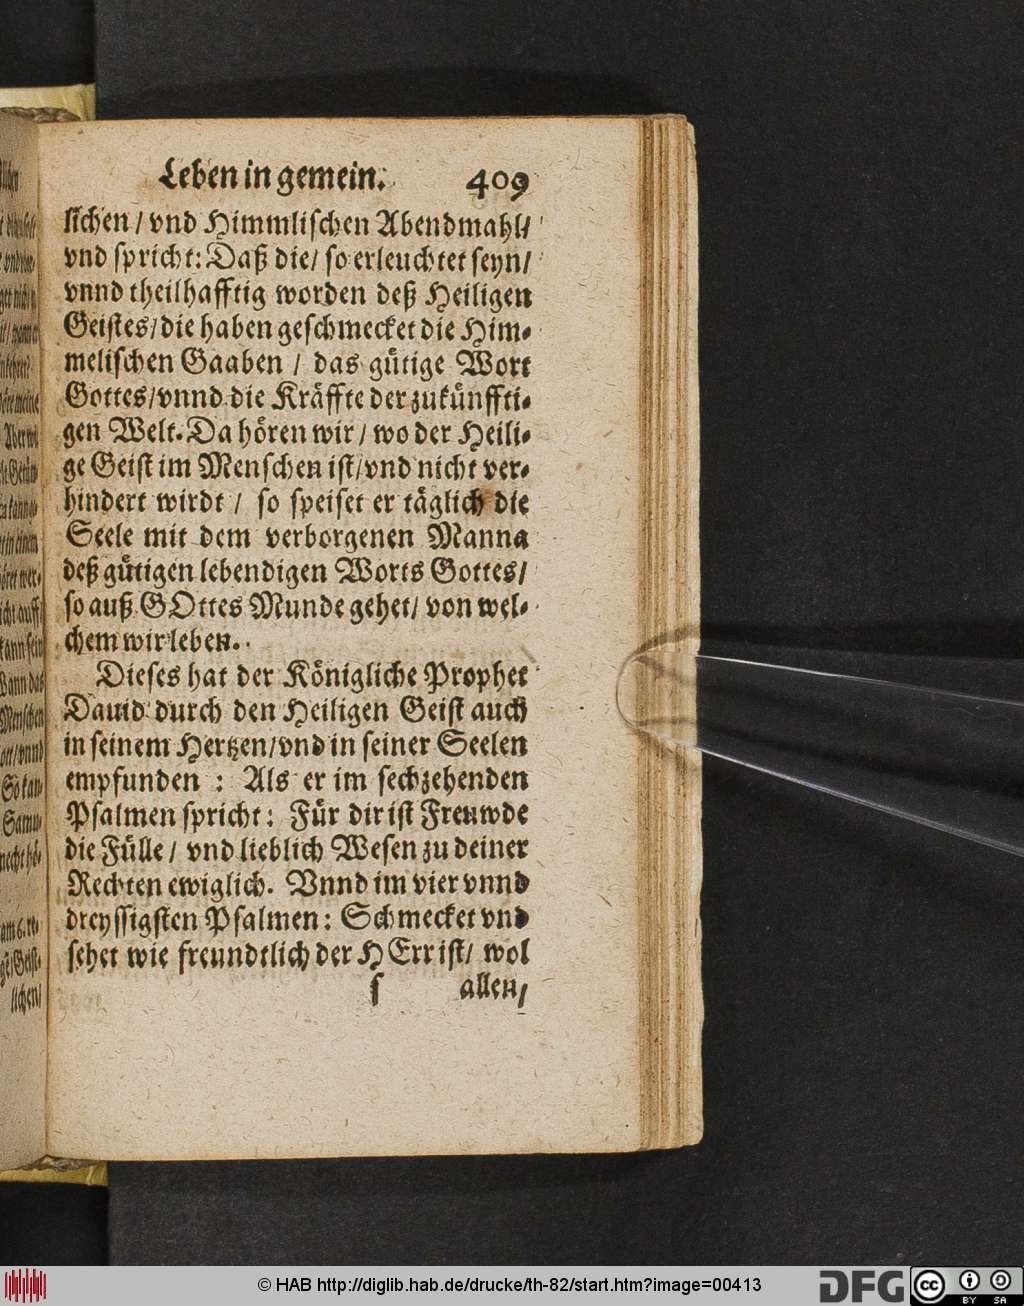 Leben in gemein. 409
lichen / vnd Himmlischen Abendmahl /
vnd spricht: Daß die / so erleuchtet seyn /
vnnd theilhafftig worden deß Heiligen
Geistes / die haben geschmecket die Him-
melischen Gaaben / das gütige Wort
Gottes / vnnd die Kräffte der zukünffti-
gen Welt. Da hören wir / wo der Heili-
ge Geist im Menschen ist / vnd nicht ver-
hindert wirdt / so speiset er täglich die
Seele mit dem verborgenen Manna
deß gütigen lebendigen Worts Gottes /
so auß GOttes Munde gehet / von wel-
chem wir leben.
Dieses hat der Königliche Prophet
Dauid durch den Heiligen Geist auch
in seinem Hertzen / vnd in seiner Seelen
empfunden : Als er im sechzehenden
Psalmen spricht: Für dir ist Freuwde
die Fülle / vnd lieblich Wesen zu deiner
Rechten ewiglich. Vnnd im vier vnnd
dreyssigsten Psalmen: Schmecket vnd
sehet wie freundtlich der HErr ist / wol
s allen /
© HAB http://diglib.hab.de/drucke/th-82/start.htm?image=00413
DFG
cc BY SA